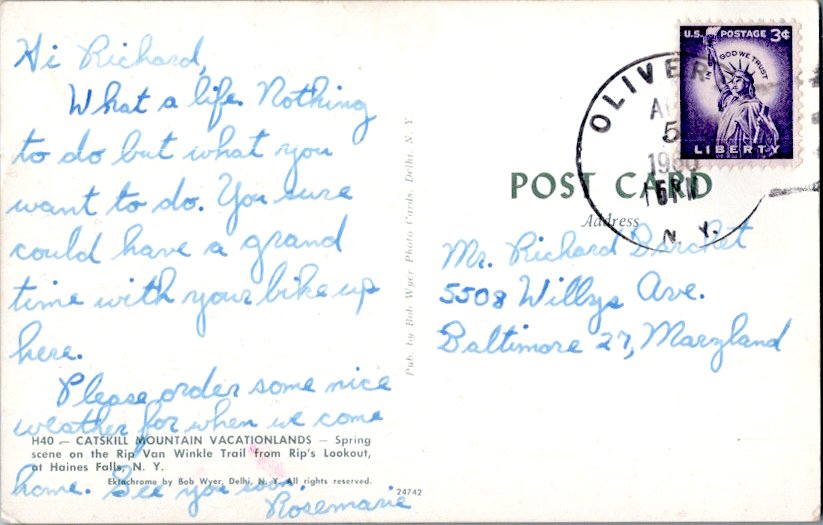 Hi Richard,
What a life. Nothing
to do but what you
want to do. You sure
could have a grand
time with your bike up
here.
Please order some nice
weather for when we come
home. See you soon.
Rosemarie
H40 — CATSKILL MOUNTAIN VACATIONLANDS — Spring
scene on the Rip Van Winkle Trail from Rip's Lookout,
at Haines Falls, N. Y.
Ektachrome by Bob Wyer, Delhi, N. Y. All rights reserved.
24742
Pub. by Bob Wyer Photo Cards, Delhi, N. Y
U.S. POSTAGE 3¢
IN GOD WE TRUST
LIBERTY
OLIVER
5
PM
N. Y.
POST CARD
Address
Mr. Richard
5508 Willys Ave.
Baltimore 27, Maryland